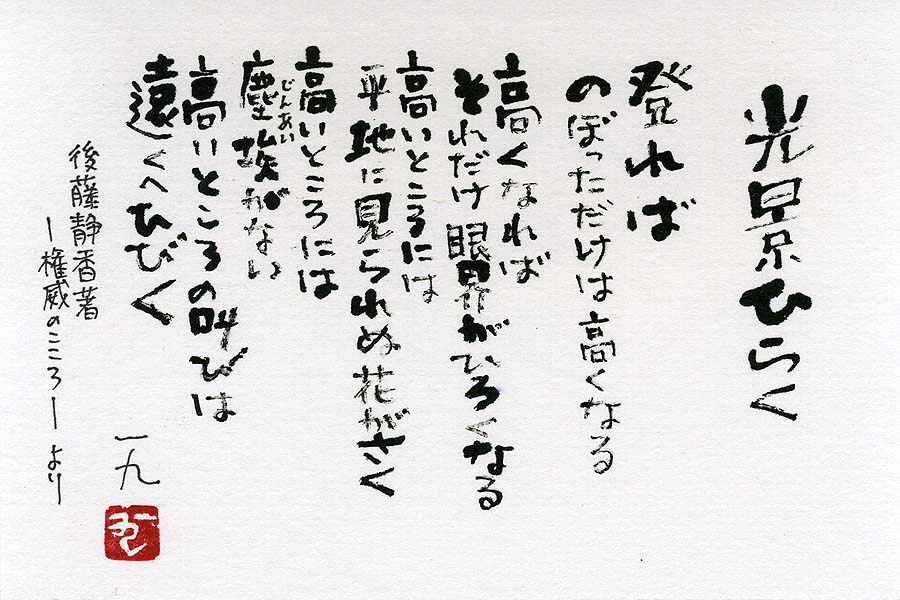 光景ひらく
登れば
のぼっただけは高くなる
高くなれば
それだけ眼界がひろくなる
高いところには
平地に見られぬ花がさく
高いところには
塵埃がない
じんあい
高いところの叫びは
遠くへひびく
後藤静香著
―権威のこころ―より
一九